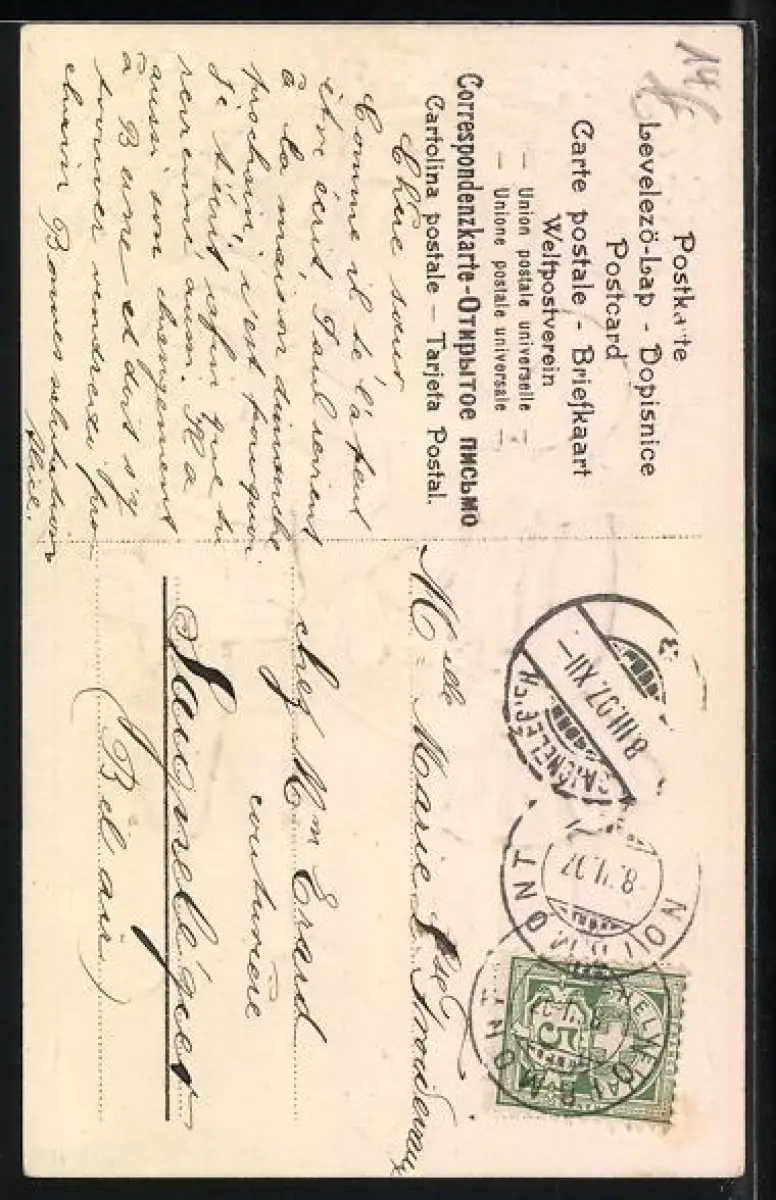 14/
Postkarte
Levelező-Lap - Dopisnice
Postcard
Carte postale - Briefkaart
Weltpostverein
— Union postale universelle —
— Unione postale universale —
Correspondenzkarte-Открытое письмо
Cartolina postale — Tarjeta Postal.
Chère sœur,
Comme il te l'a peut
être écrit Paul revient
à la maison dimanche
prochain, c'est pourquoi
je t'écrit afin que tu
reviennes aussi. Il a
aussi son changement
à Berne et doit s'y
trouver vendredi pro
chain Bonnes salutations
Alice.
Mlle Marie
chez Mm Erard
couturière
Saignelégier
(Bel air)
SAIGNELÉGIER
8.III.07.XII—
NOIRMONT
8. 07
HELVETIA
5
NOIRMONT